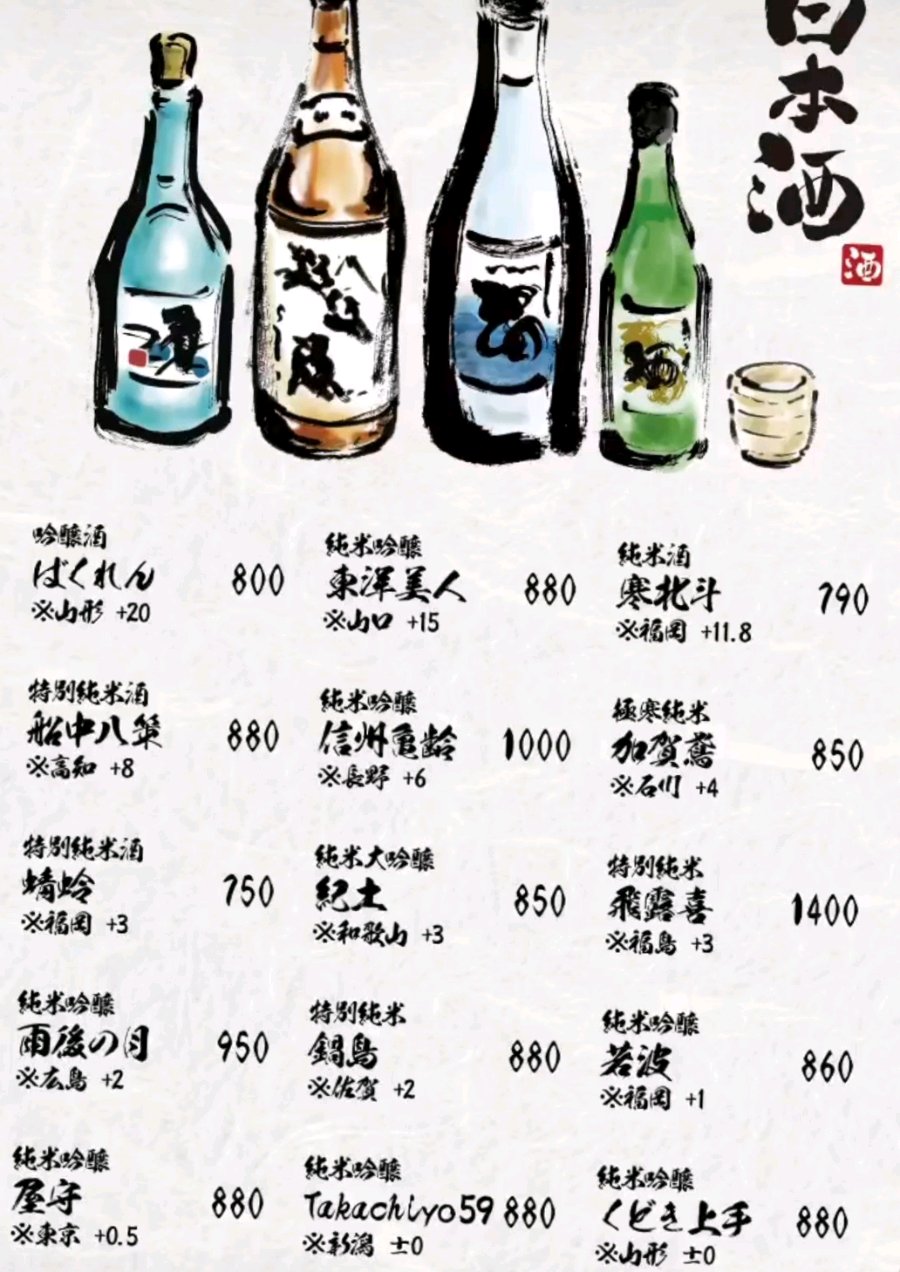 日本酒
酒
吟醸酒
ばくれん 800
※山形 +20
特別純米酒
船中八策 880
※高知 +8
特別純米酒
蜻蛉 750
※福岡 +3
純米吟醸
雨後の月 950
※広島 +2
純米吟醸
屋守 880
※東京 +0.5
純米吟醸
東洋美人 880
※山口 +15
純米吟醸
信州亀齢 1000
※長野 +6
純米大吟醸
紀土 850
※和歌山 +3
特別純米
鍋島 880
※佐賀 +2
純米吟醸
Takachiyo59 880
※新潟 ±0
純米酒
寒北斗 790
※福岡 +11.8
極寒純米
加賀鳶 850
※石川 +4
特別純米
飛露喜 1400
※福島 +3
純米吟醸
若波 860
※福岡 +1
純米吟醸
くどき上手 880
※山形 ±0